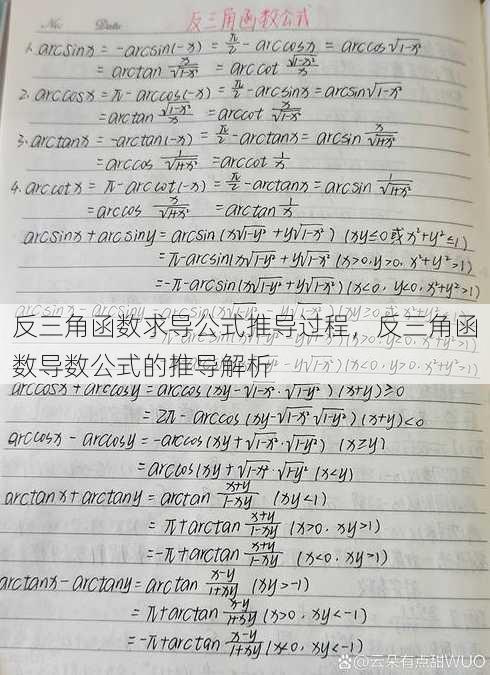 No.
Date
反三角函数公式
1. arcsinx = -arcsin(-x) = π/2 - arccosx = arccos√1-x²
= arctan x/√1-x² = arccot √1-x²/x
2. arccosx = π - arccos(-x) = π/2 - arcsinx = arcsin√1-x²
= arctan √1-x²/x = arccot x/√1-x²
3. arctanx = -arctan(-x) = π/2 - arctanx = arcsin x/√1+x²
= arccos 1/√1+x² = arccot 1/x
4. arccotx = π - arccot(-x) = π/2 - arctanx = arcsin 1/√1+x²
= arccos x/√1+x² = arctan 1/x
arcsinx + arcsiny = arcsin (x√1-y² + y√1-x²) (xy≤0 或 x²+y²≤1)
= π - arcsin(x√1-y² + y√1-x²) (x>0, y>0, x²+y²>1)
= -π - arcsin(x√1-y² + y√1-x²) (x<0, y<0, x²+y²>1)
反三角函数求导公式推导过程，反三角函
数导数公式的推导解析
arccosx + arccosy = arccos (xy - √1-x²·√1-y²) (x+y)≥0
= 2π - arccos (xy - √1-x²·√1-y²) (x+y)<0
arccosx - arccosy = -arccos (xy + √1-x²·√1-y²) (x≥y)
= arccos (xy + √1-x²·√1-y² (x<y)
arctanx + arctany = arctan x+y/1-xy (xy<1)
= π + arctan x+y/1-xy (x>0, xy>1)
= -π + arctan x+y/1-xy (x<0, xy>1)
arctanx - arctany = arctan x-y/1+xy (xy>-1)
= π + arctan x-y/1+xy (x>0, xy<-1)
= -π + arctan x-y/1+xy (x<0, xy<-1)
@云朵有点甜WUO